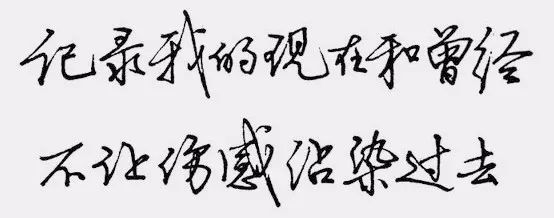 记录我的现在和曾经
不让伤感沾染过去